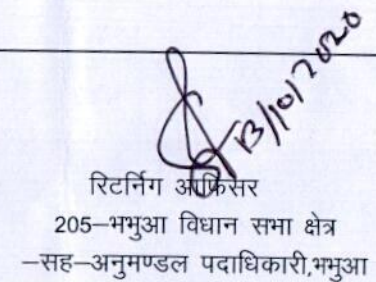 13/10/2020
रिटर्निंग आफिसर
205–भभुआ विधान सभा क्षेत्र
–सह–अनुमण्डल पदाधिकारी,भभुआ